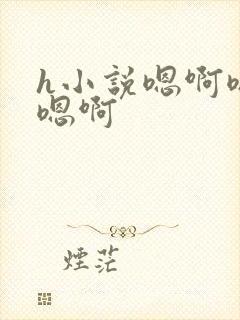 h小說嗯啊
嗯啊
煙茫